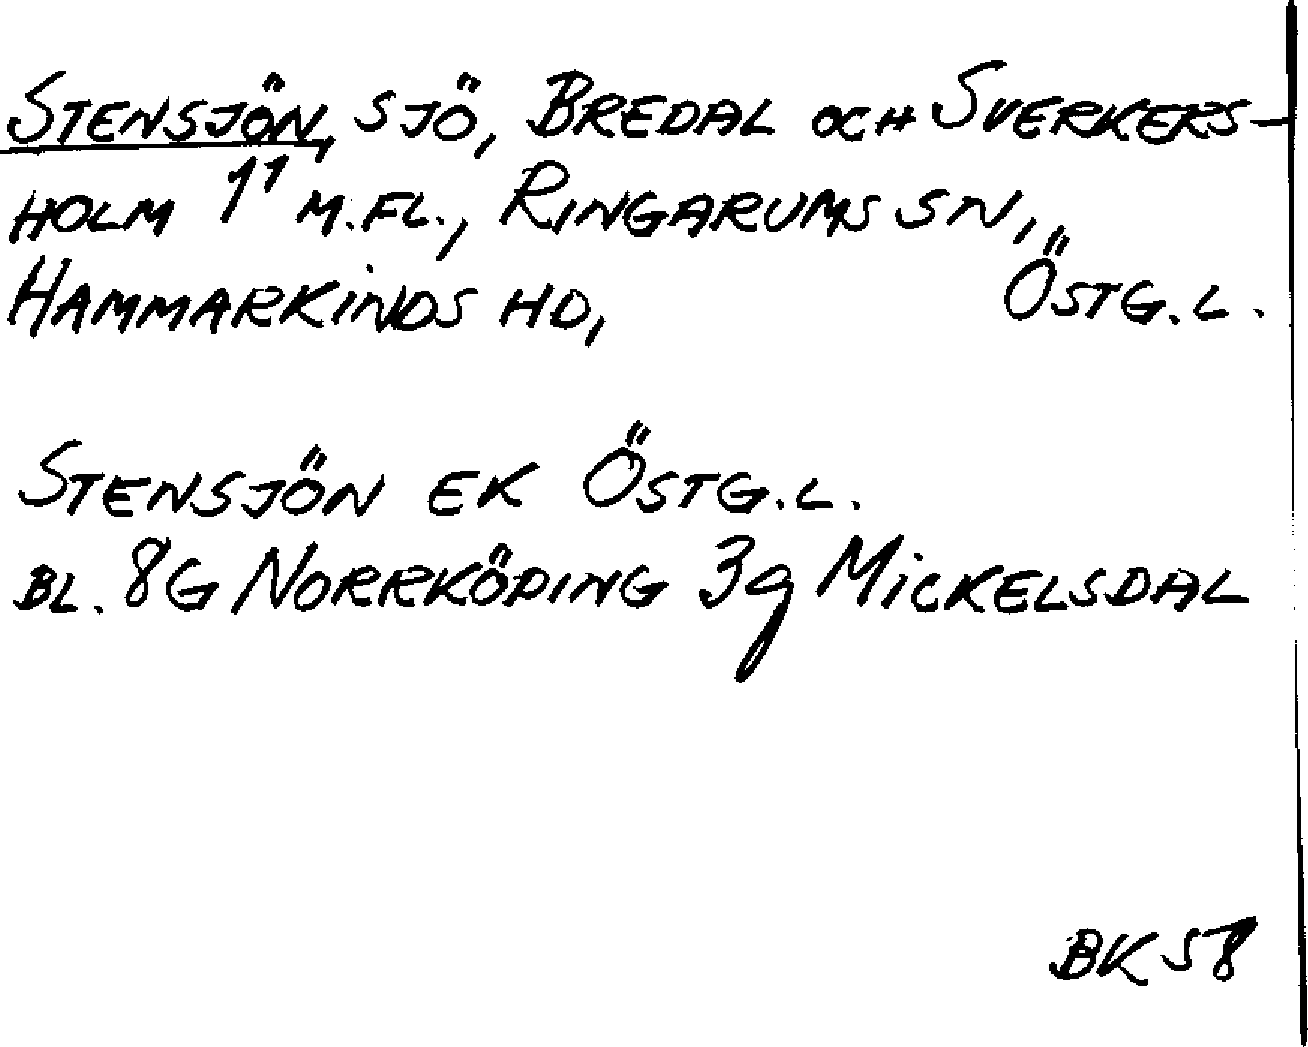 STENSJÖN, SJÖ, BREDAL OCH SVERKERS-
HOLM 1¹ M.FL., RINGARUMS SN,
HAMMARKINDS HD, ÖSTG.L.
STENSJÖN EK ÖSTG.L.
BL. 8G NORRKÖPING 3g MICKELSDAL
BK 58